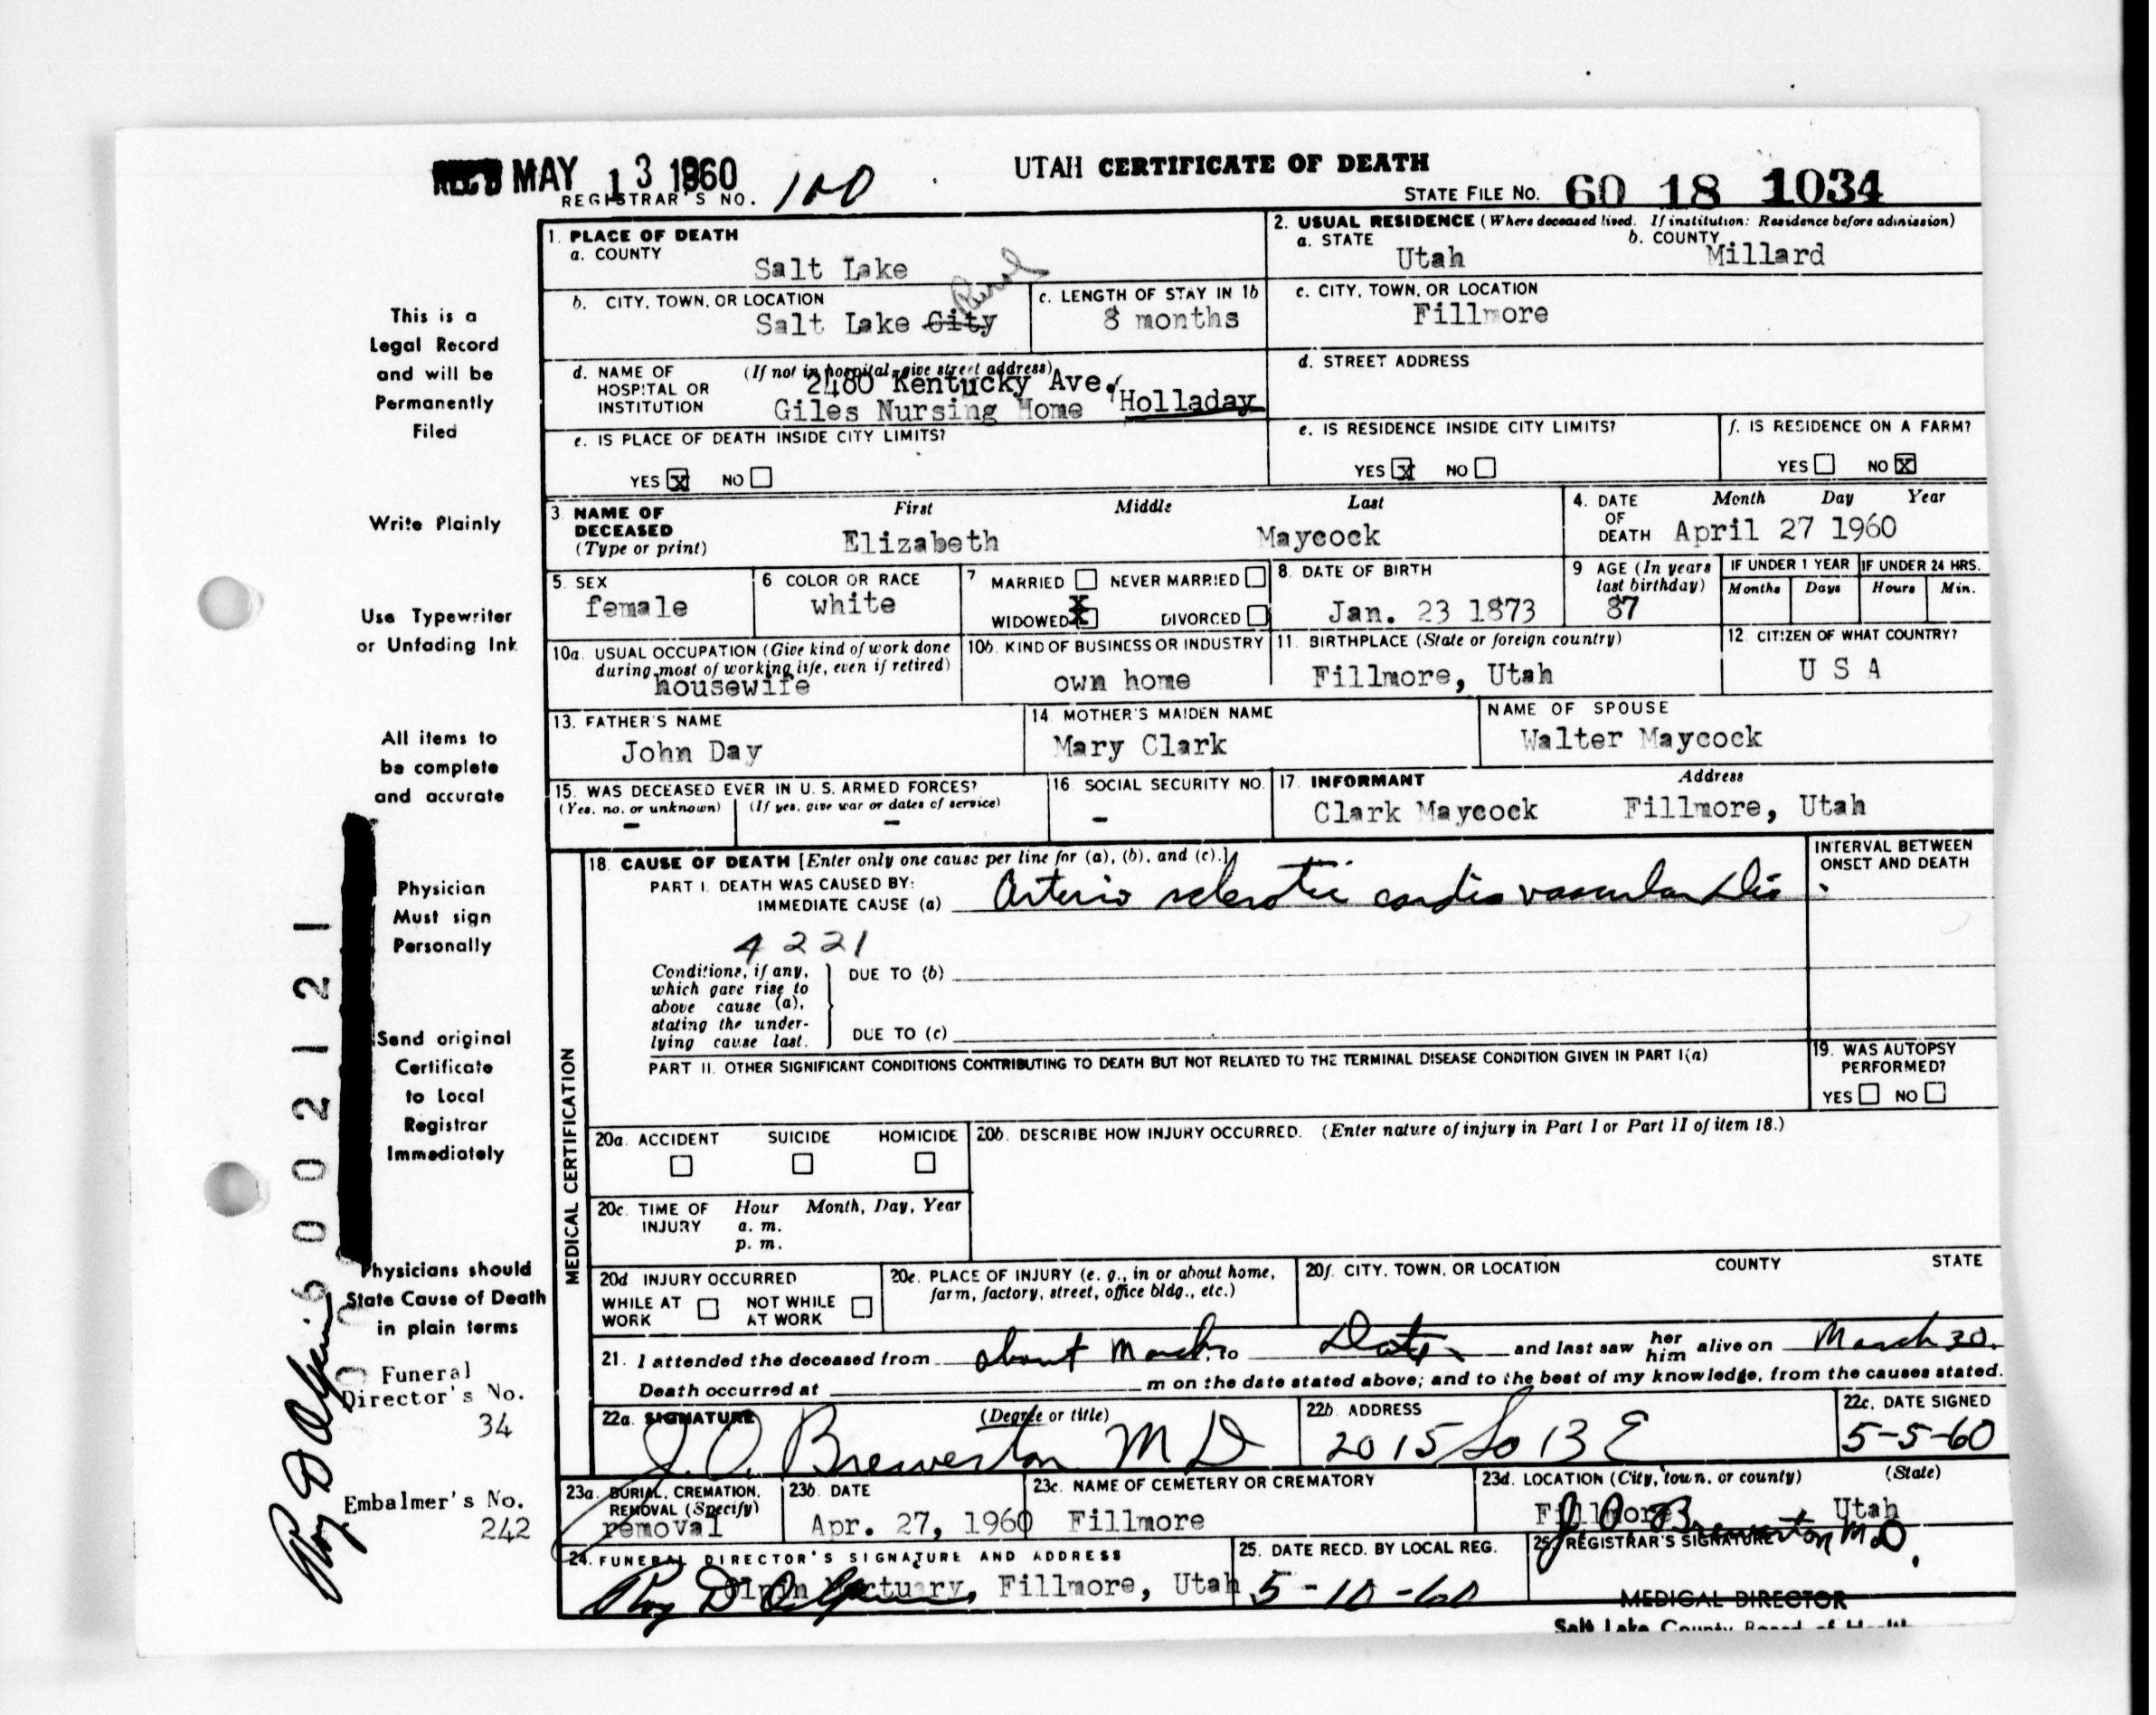 REC'D MAY 13 1960
REGISTRAR'S NO. 100
UTAH CERTIFICATE OF DEATH
STATE FILE NO. 60 18 1034
This is a
Legal Record
and will be
Permanently
Filed
Write Plainly
Use Typewriter
or Unfading Ink
All items to
be complete
and accurate
Physician
Must sign
Personally
Send original
Certificate
to Local
Registrar
Immediately
Physicians should
State Cause of Death
in plain terms
Funeral
Director's No.
34
Embalmer's No.
242
6002121
1. PLACE OF DEATH
a. COUNTY
Salt Lake
b. CITY, TOWN, OR LOCATION
Salt Lake City
Rural
c. LENGTH OF STAY IN 1b
8 months
d. NAME OF HOSPITAL OR INSTITUTION
(If not in hospital, give street address)
2480 Kentucky Ave.
Giles Nursing Home Holladay
e. IS PLACE OF DEATH INSIDE CITY LIMITS?
YES X NO
2. USUAL RESIDENCE (Where deceased lived. If institution: Residence before admission)
a. STATE
Utah
b. COUNTY
Millard
c. CITY, TOWN, OR LOCATION
Fillmore
d. STREET ADDRESS
e. IS RESIDENCE INSIDE CITY LIMITS?
YES X NO
f. IS RESIDENCE ON A FARM?
YES NO X
3 NAME OF DECEASED (Type or print)
First Middle Last
Elizabeth Maycock
4. DATE OF DEATH
Month Day Year
April 27 1960
5. SEX
female
6 COLOR OR RACE
white
7 MARRIED NEVER MARRIED
WIDOWED X DIVORCED
8. DATE OF BIRTH
Jan. 23 1873
9 AGE (In years last birthday)
87
IF UNDER 1 YEAR
Months Days
IF UNDER 24 HRS.
Hours Min.
10a. USUAL OCCUPATION (Give kind of work done during most of working life, even if retired)
housewife
10b. KIND OF BUSINESS OR INDUSTRY
own home
11. BIRTHPLACE (State or foreign country)
Fillmore, Utah
12. CITIZEN OF WHAT COUNTRY?
U S A
13. FATHER'S NAME
John Day
14. MOTHER'S MAIDEN NAME
Mary Clark
NAME OF SPOUSE
Walter Maycock
15. WAS DECEASED EVER IN U. S. ARMED FORCES?
(Yes, no, or unknown) (If yes, give war or dates of service)
- -
16. SOCIAL SECURITY NO.
-
17. INFORMANT Address
Clark Maycock Fillmore, Utah
MEDICAL CERTIFICATION
18. CAUSE OF DEATH [Enter only one cause per line for (a), (b), and (c).]
PART I. DEATH WAS CAUSED BY:
IMMEDIATE CAUSE (a) Arterio sclerotic cardio vascular Dis.
INTERVAL BETWEEN ONSET AND DEATH
4221
Conditions, if any,
which gave rise to
above cause (a),
stating the under-
lying cause last.
DUE TO (b)
DUE TO (c)
PART II. OTHER SIGNIFICANT CONDITIONS CONTRIBUTING TO DEATH BUT NOT RELATED TO THE TERMINAL DISEASE CONDITION GIVEN IN PART I(a)
19. WAS AUTOPSY PERFORMED?
YES NO
20a. ACCIDENT SUICIDE HOMICIDE
20b. DESCRIBE HOW INJURY OCCURRED. (Enter nature of injury in Part I or Part II of item 18.)
20c. TIME OF INJURY
Hour Month, Day, Year
a. m.
p. m.
20d INJURY OCCURRED
WHILE AT WORK NOT WHILE AT WORK
20e. PLACE OF INJURY (e. g., in or about home, farm, factory, street, office bldg., etc.)
20f. CITY, TOWN, OR LOCATION COUNTY STATE
21. I attended the deceased from about March, to Date and last saw her him alive on March 30.
Death occurred at m on the date stated above; and to the best of my knowledge, from the causes stated.
22a. SIGNATURE (Degree or title)
J. O. Brewerton M D
22b. ADDRESS
2015 So 13 E
22c. DATE SIGNED
5-5-60
23a. BURIAL, CREMATION, REMOVAL (Specify)
removal
23b. DATE
Apr. 27, 1960
23c. NAME OF CEMETERY OR CREMATORY
Fillmore
23d. LOCATION (City, town, or county) (State)
Fillmore Utah
24. FUNERAL DIRECTOR'S SIGNATURE AND ADDRESS
Olpin Mortuary, Fillmore, Utah
Roy D Olpin
25. DATE RECD. BY LOCAL REG.
5-10-60
26. REGISTRAR'S SIGNATURE
J O Brewerton M D.
MEDICAL DIRECTOR
Salt Lake County Board of Health
Roy D Olpin